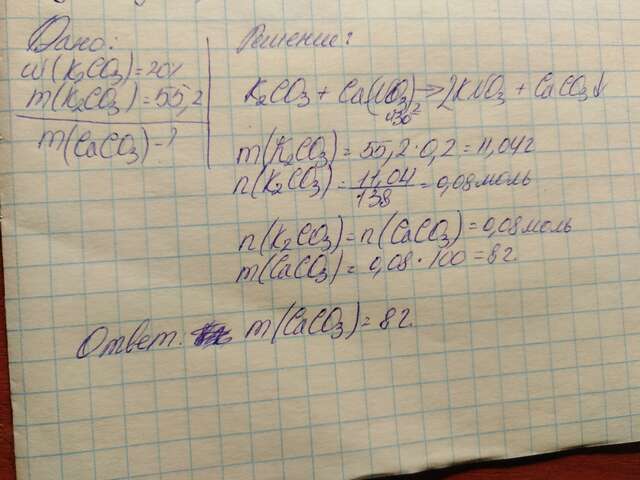 Дано:
ω(K₂CO₃)=20%
m(K₂CO₃)=55,2
m(CaCO₃)-?
Решение:
K₂CO₃ + Ca(NO₃)₂ → 2KNO₃ + CaCO₃↓
m(K₂CO₃) = 55,2·0,2 = 11,04г
n(K₂CO₃) = 11,04/138 = 0,08моль
n(K₂CO₃) = n(CaCO₃) = 0,08моль
m(CaCO₃) = 0,08·100 = 8г.
Ответ: m(CaCO₃) = 8г.